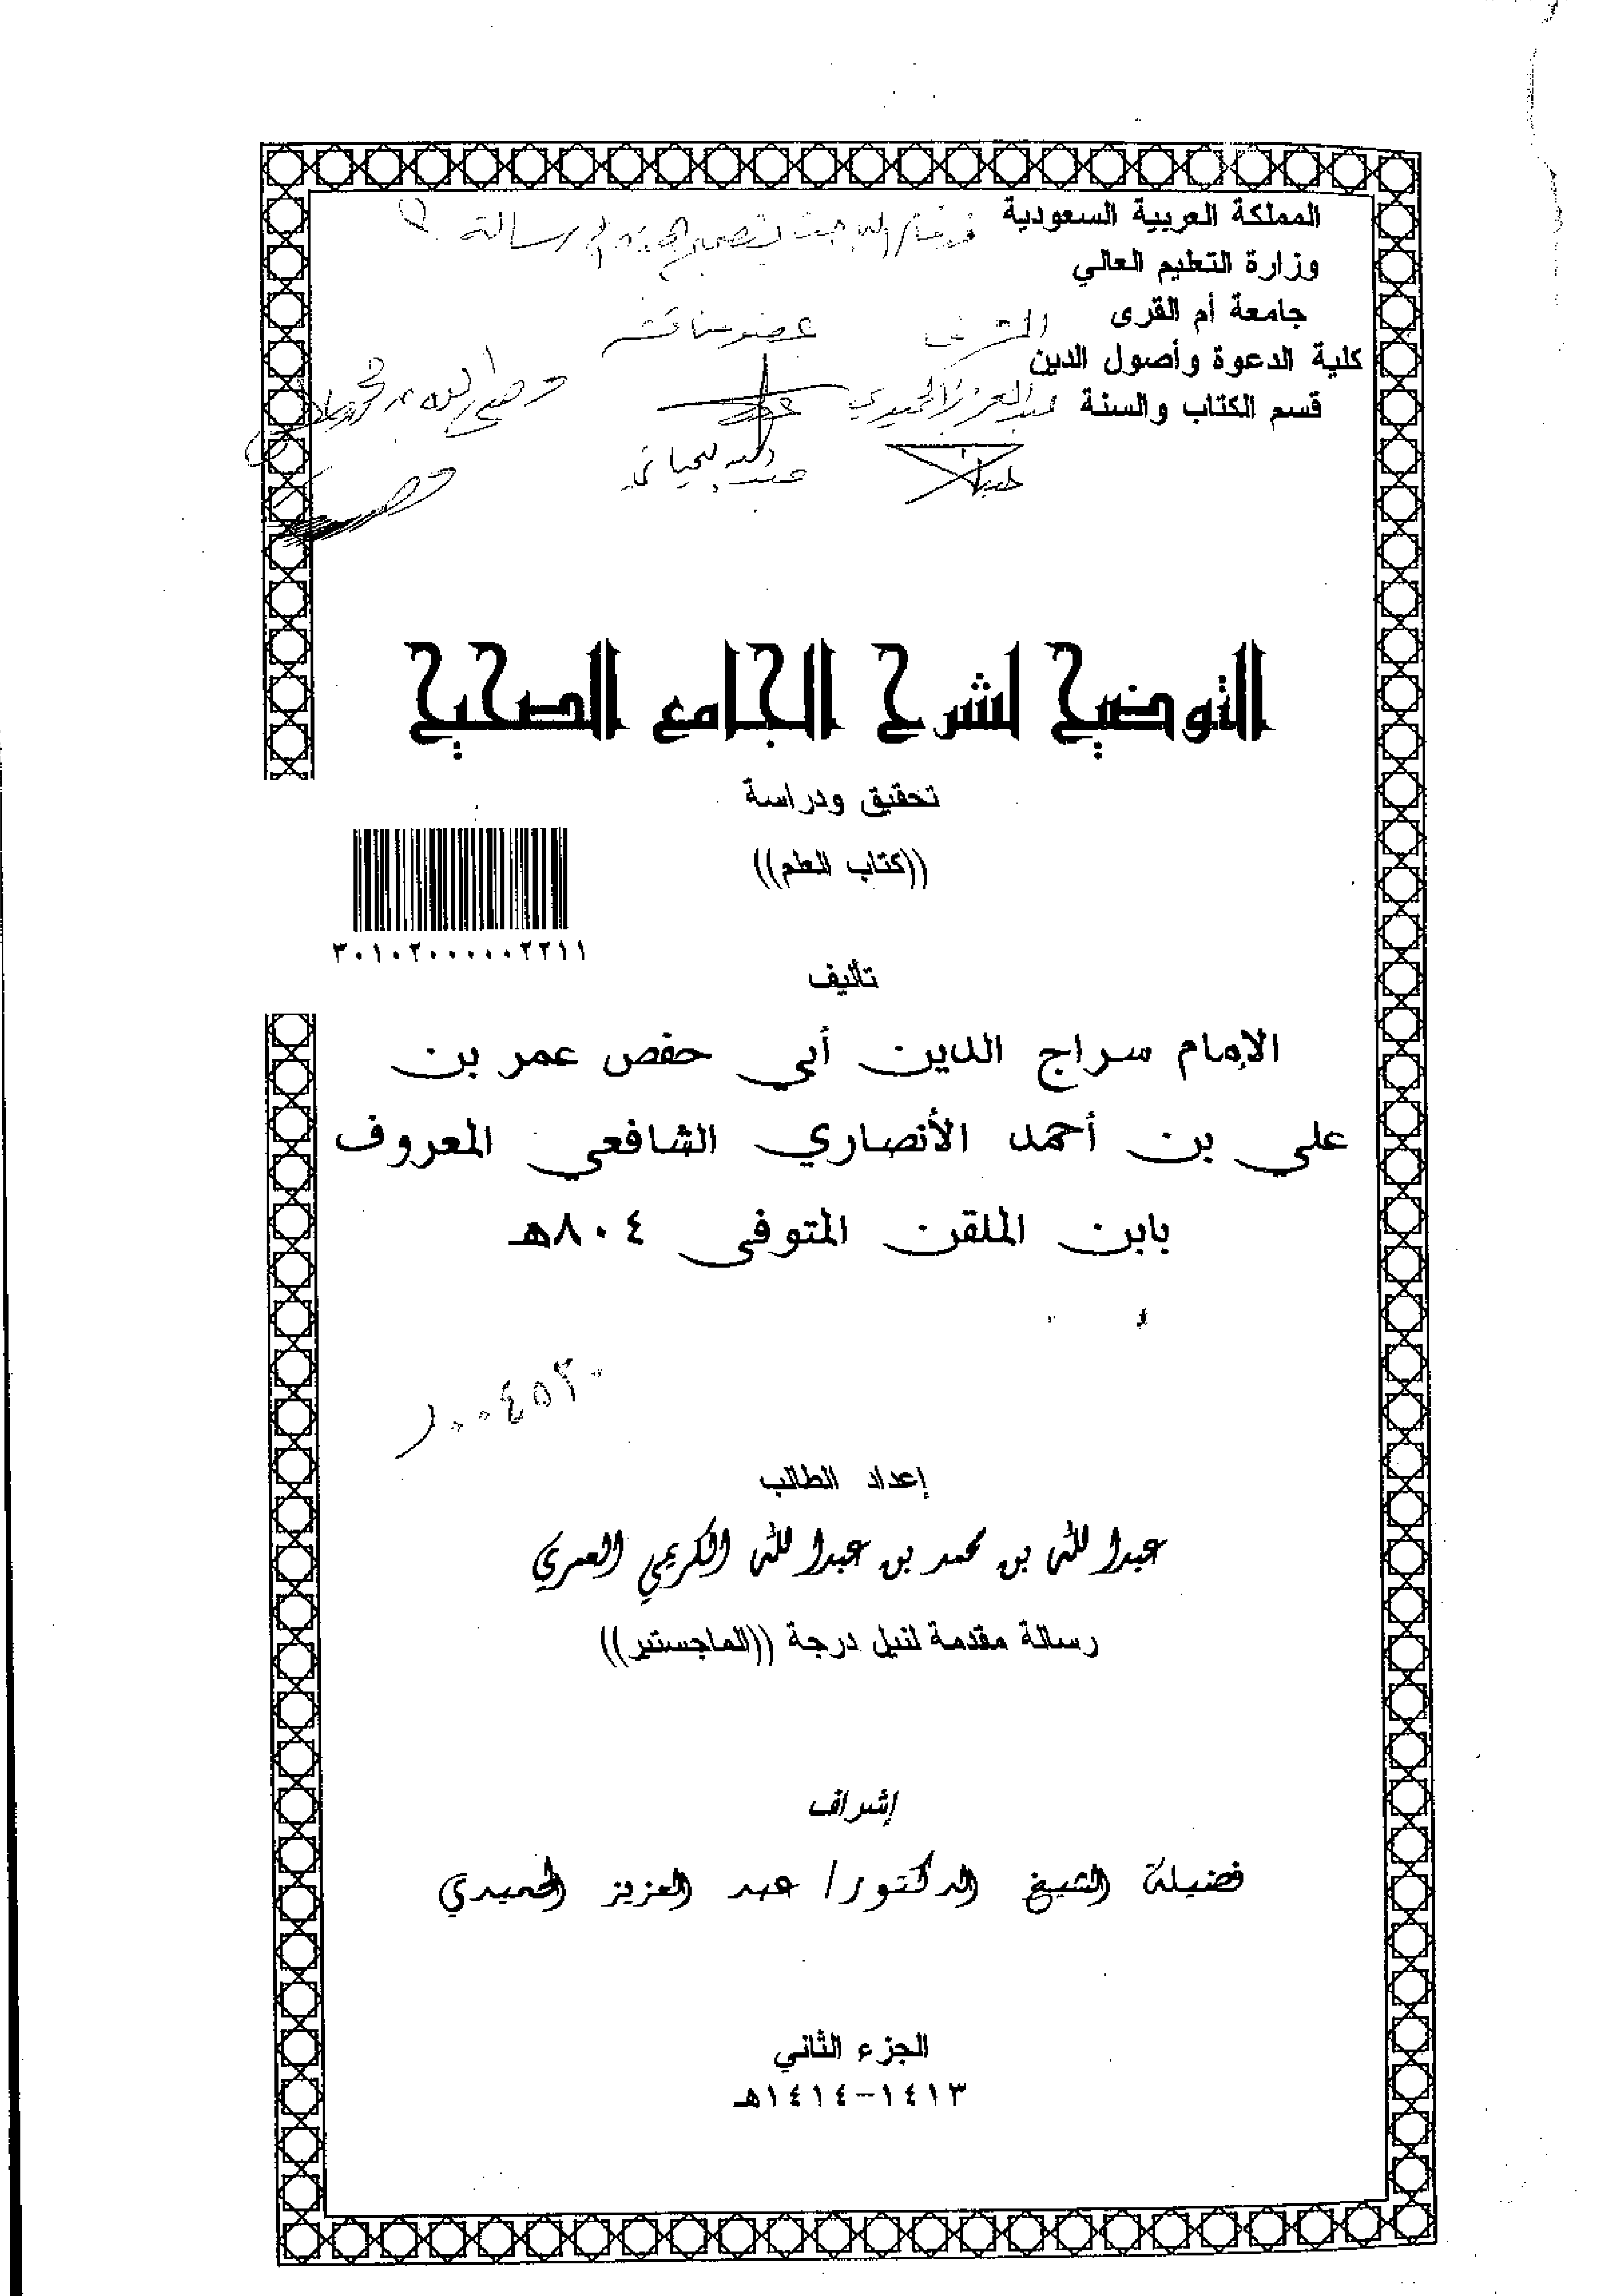 المملكة العربية السعودية
وزارة التعليم العالي
جامعة أم القرى
كلية الدعوة وأصول الدين
قسم الكتاب والسنة
قد قام الباحث بتصحيح هذه الرسالة
المشرف
عضو مناقش
عبد العزيز الحميدي
وصي الله بن محمد عباس
التوضيح لشرح الجامع الصحيح
تحقيق ودراسة
((كتاب العلم))
٣٠١٠٢٠٠٠٠٠٢٢١١
تأليف
الإمام سراج الدين أبي حفص عمر بن
علي بن أحمد الأنصاري الشافعي المعروف
بابن الملقن المتوفى ٨٠٤هـ
إعداد الطالب
عبدالله بن محمد بن عبدالله الكريمي العمري
رسالة مقدمة لنيل درجة ((الماجستير))
إشراف
فضيلة الشيخ الدكتور/ عبد العزيز الحميدي
الجزء الثاني
١٤١٣-١٤١٤هـ